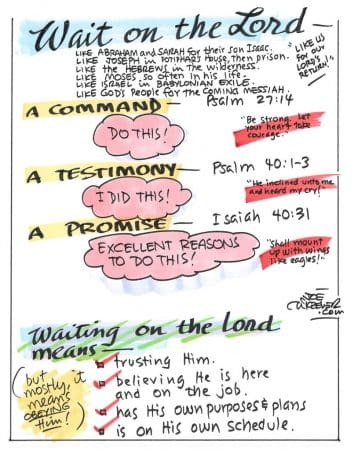 Wait on the Lord —
LIKE ABRAHAM and SARAH for their Son Isaac.
LIKE JOSEPH in POTIPHAR'S House, then prison.
LIKE the HEBREWS in the wilderness.
LIKE MOSES, so often in his life.
LIKE ISRAEL in BABYLONIAN EXILE.
LIKE GOD'S PEOPLE for THE COMING MESSIAH.
"LIKE US
for our
LORD'S
RETURN!"
A COMMAND — Psalm 27:14
DO THIS!
"Be strong. Let
your heart take
courage."
A TESTIMONY — Psalm 40:1-3
I DID THIS!
"He inclined unto me
and heard my cry!"
A PROMISE — Isaiah 40:31
EXCELLENT REASONS
TO DO THIS!
"Shall mount
up with wings
like eagles!"
JOE
McKEEVER
.com
Waiting on the Lord
means —
trusting Him.
believing He is here
and on the job.
has His own purposes & plans
is on His own schedule.
(but
mostly, it
means
OBEYING
Him!)